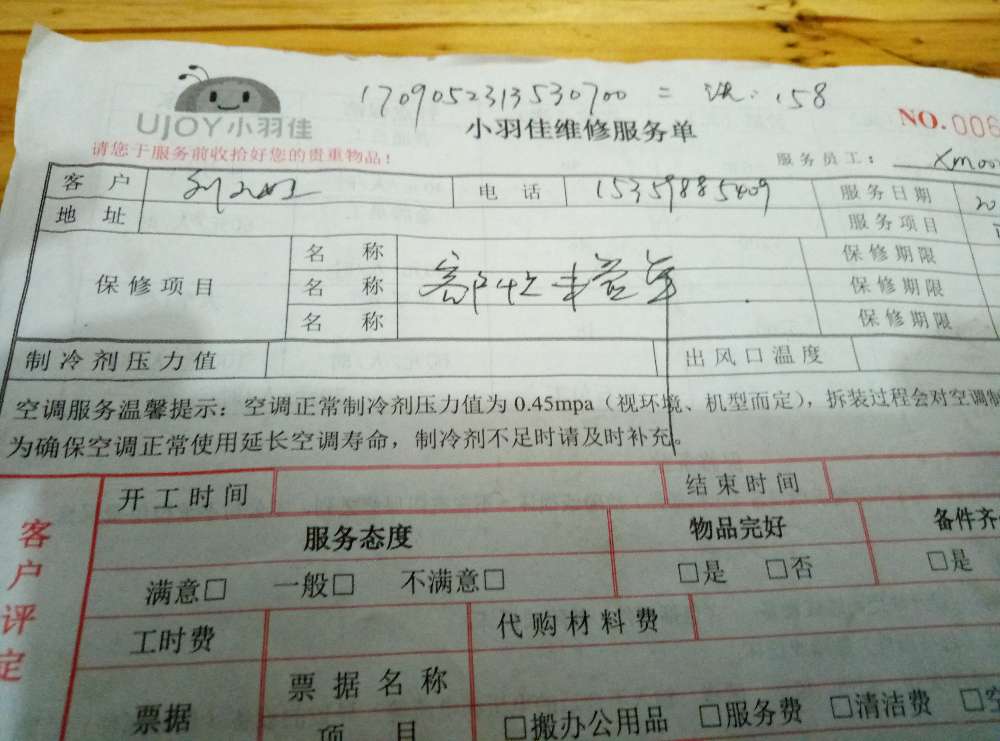 1709052313530700 = 158
UJOY小羽佳
小羽佳维修服务单
NO.006
请您于服务前收拾好您的贵重物品!
服务员工: Xmoo
客 户 电 话 15359885409 服务日期 20
地 址 服务项目
保修项目 名 称 保修期限
名 称 保修期限
名 称 保修期限
制冷剂压力值 出风口温度
空调服务温馨提示:空调正常制冷剂压力值为 0.45mpa(视环境、机型而定),拆装过程会对空调制
为确保空调正常使用延长空调寿命,制冷剂不足时请及时补充。
客户评定
开工时间 结束时间
服务态度 物品完好 备件齐
满意□ 一般□ 不满意□ □是 □否 □是
工时费 代购材料费
票据 票据名称
项 目 □搬办公用品 □服务费 □清洁费 □空